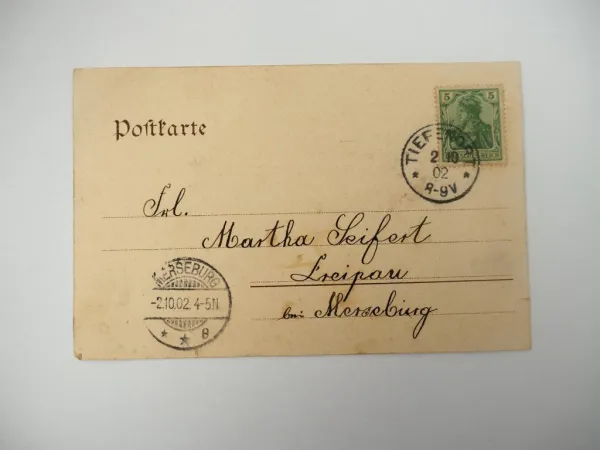 5 5
Postkarte
2 10
02
8-9V
Frl.
Martha Seifert
Freipau
bei Merseburg
MERSEBURG
-2.10.02. 4-5N